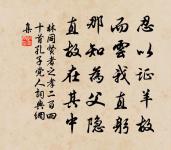 忍以证羊故
而雲我直躬
那知為父隐
直故在其中
林同賢者之孝二百四
十首孔子党人詞典網
集